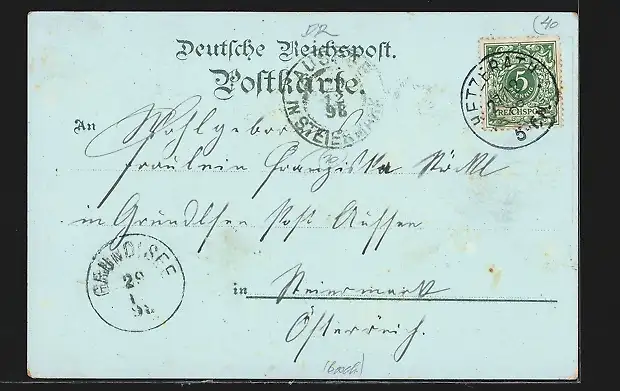 DR
(40
Deutsche Reichspost.
Postkarte.
HETZERATH
5-6 N
5
REICHSPOST
AUSSEE
98
IN STEIERMARK
An Wohlgeboren
Fräulein Franziska Stöckl
in Grundlsee Post Aussee
in Steiermark
Österreich.
GRUNDLSEE
29
1
98